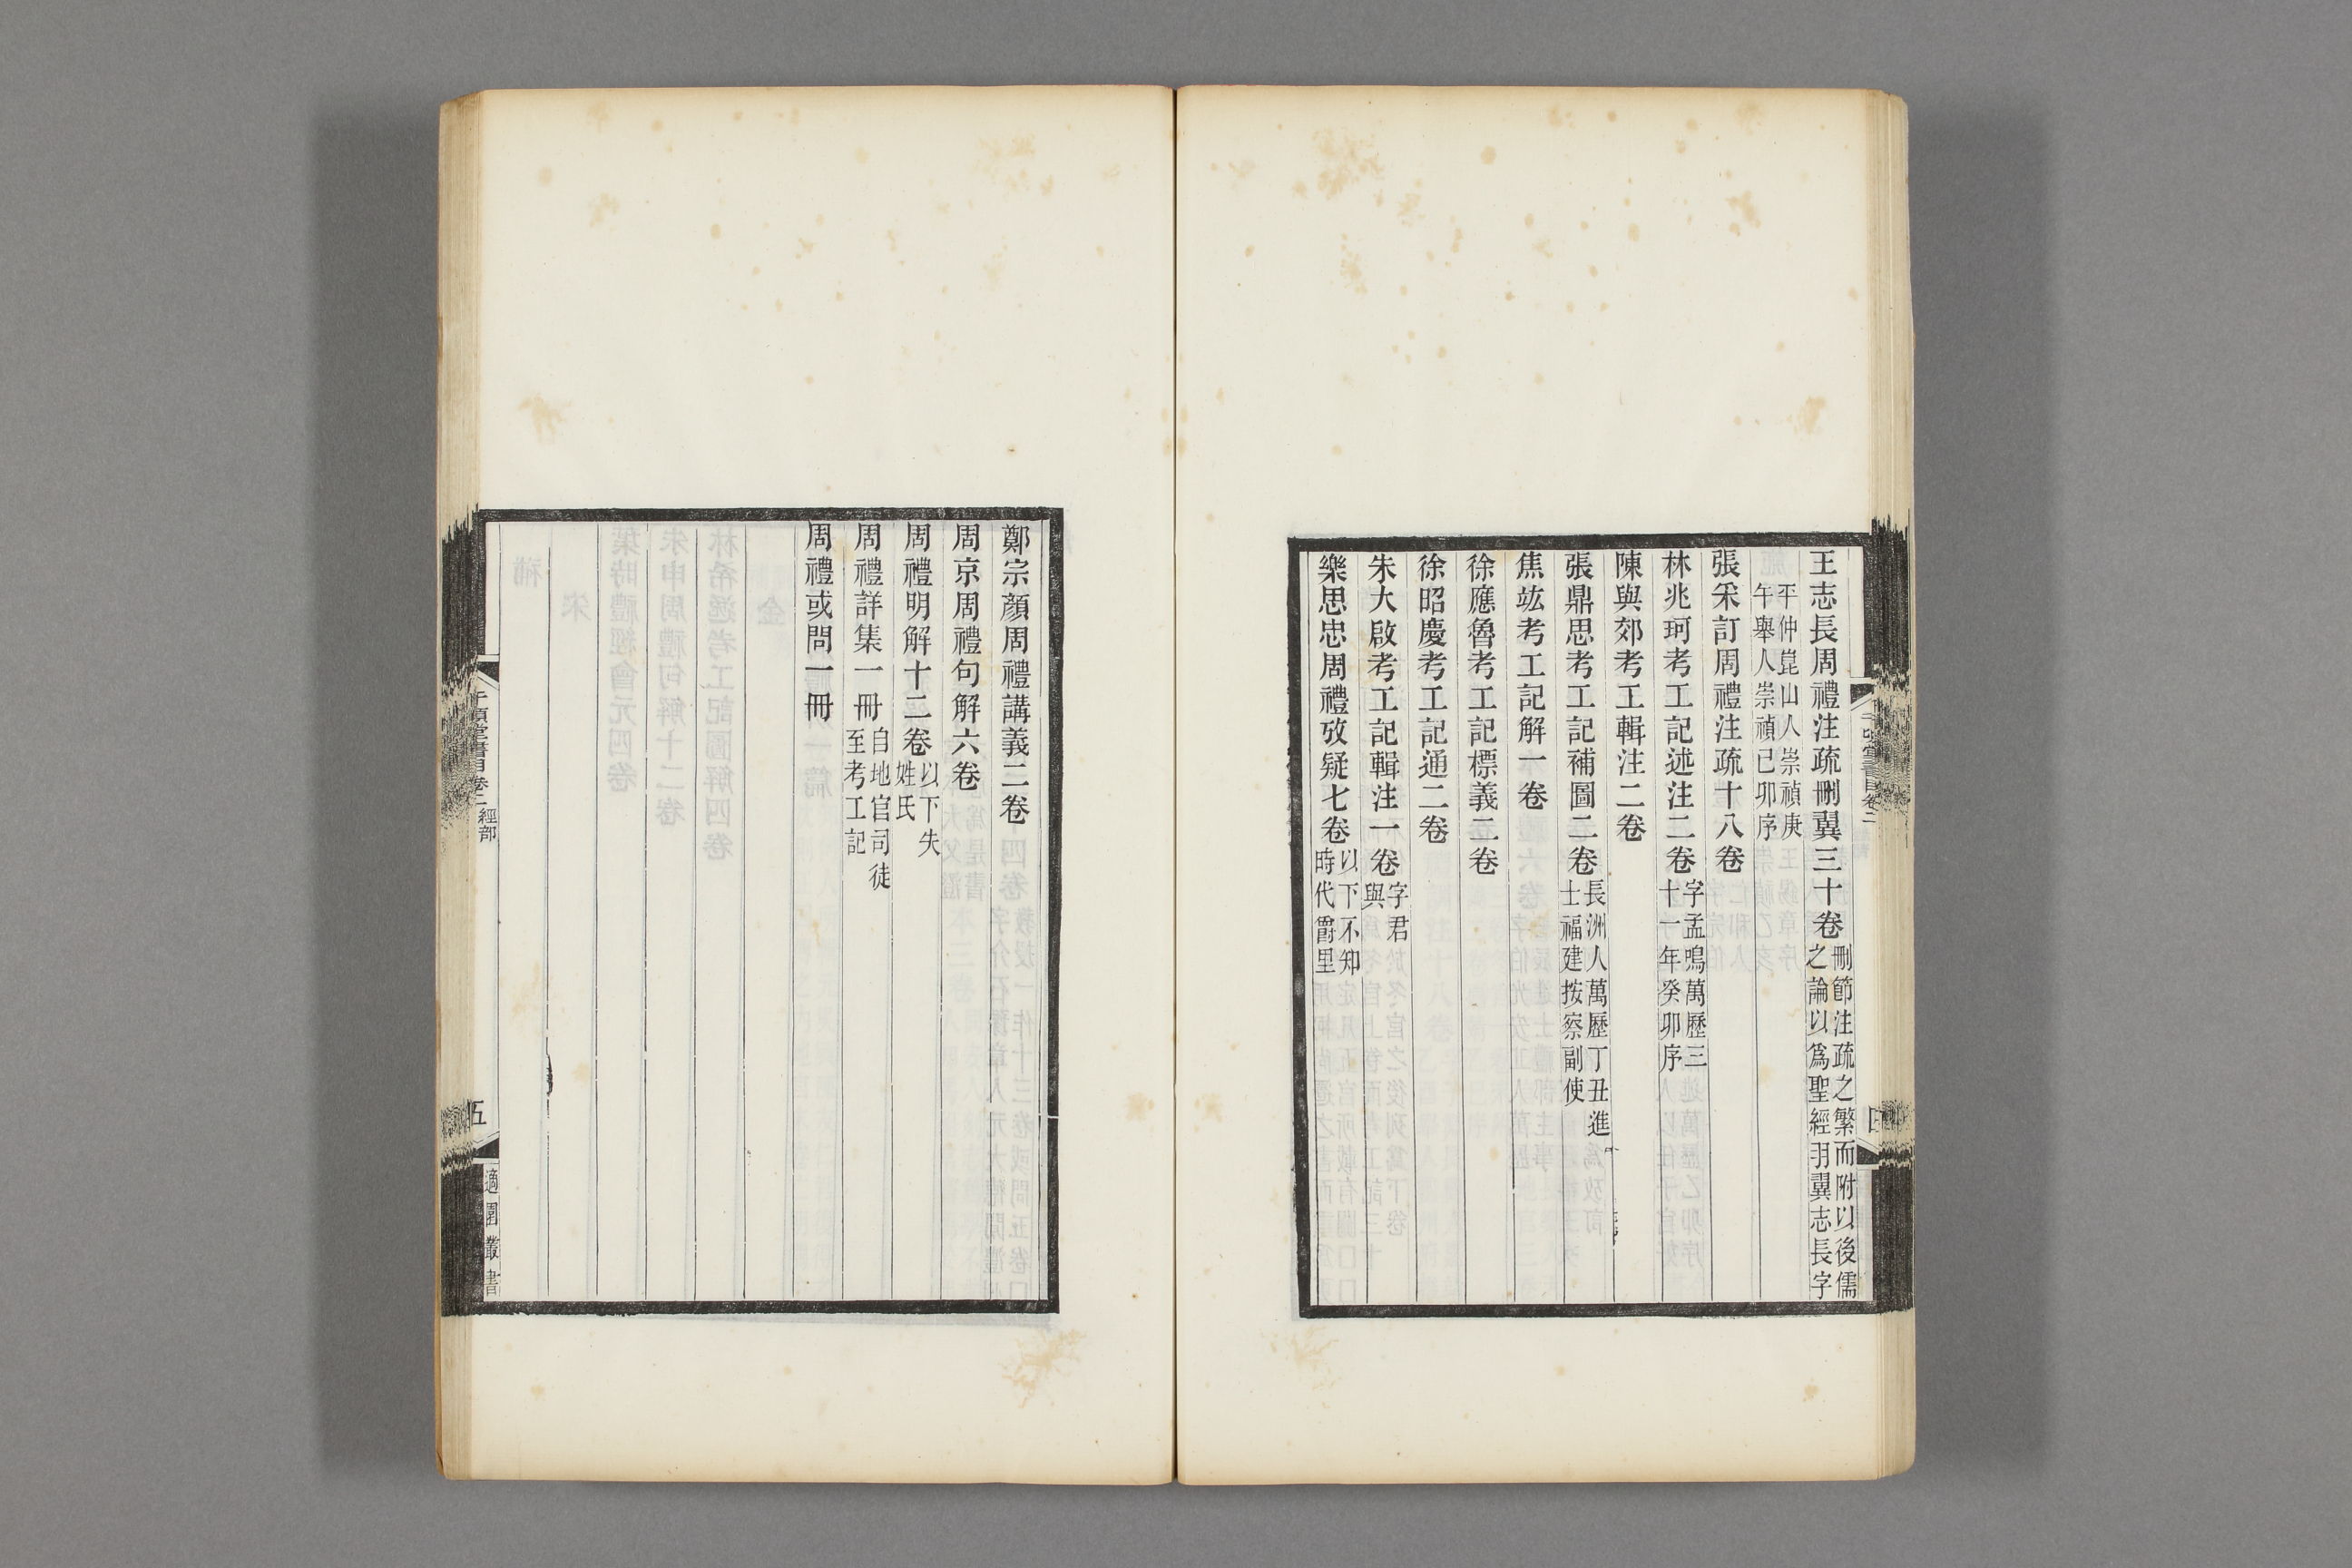 王志長周禮注疏刪翼三十卷刪節注疏之繁而附以後儒之論以爲聖經羽翼志長字
平仲崑山人崇禎庚午舉人崇禎己卯序
張采訂周禮注疏十八卷
林兆珂考工記述注二卷字孟鳴萬歷三十一年癸卯序
陳與郊考工輯注二卷
張鼎思考工記補圖二卷長洲人萬歷丁丑進士福建按察副使
焦竑考工記解一卷
徐應魯考工記標義二卷
徐昭慶考工記通二卷
朱大啟考工記輯注一卷字君與
樂思忠周禮攷疑七卷以下不知時代爵里
鄭宗顏周禮講義二卷
周京周禮句解六卷
周禮明解十二卷以下失姓氏
周禮詳集一冊自地官司徒至考工記
周禮或問一冊
千頃堂書目卷二經部
五
適園叢書